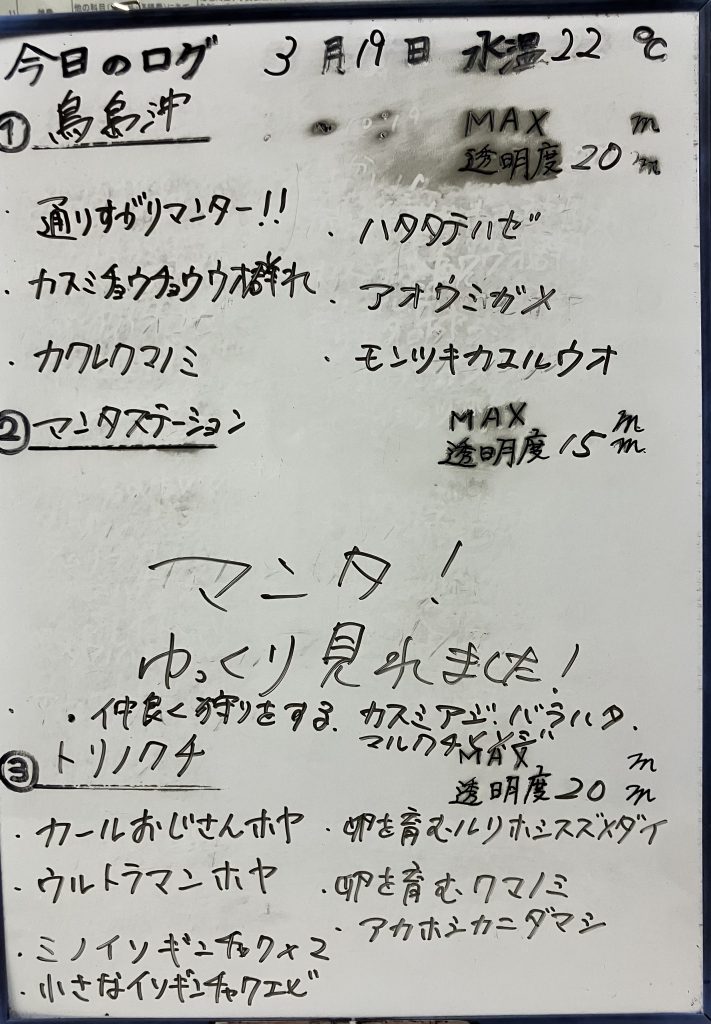 今日のログ 3月19日 水温22℃
① 鳥島沖
MAX m
透明度20m
・通りすがりマンター!!
・ハタタテハゼ
・カスミチョウチョウウオ群れ
・アオウミガメ
・カクレクマノミ
・モンツキカエルウオ
② マンタステーション
MAX m
透明度15m
マンタ!
ゆっくり見れました!
・仲良く狩りをする、カスミアジ、バラハタ、
マルクチヒメジ
③ トリノクチ
MAX m
透明度20m
・カールおじさんホヤ
・卵を育むルリホシスズメダイ
・ウルトラマンホヤ
・卵を育むクマノミ
・アカホシカニダマシ
・ミノイソギンチャク×2
・小さなイソギンチャクエビ